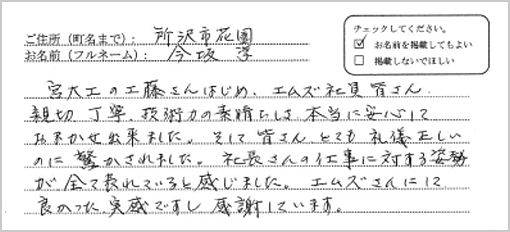 ご住所（町名まで）： 所沢市花園
お名前（フルネーム）： 今坂 淳
チェックしてください。
☑ お名前を掲載してもよい
□ 掲載しないでほしい
宮大工の工藤さんはじめ、エムズ社員皆さん
親切、丁寧、技術力の素晴らしさ、本当に安心して
おまかせ出来ました。そして皆さんとても礼儀正しい
のに驚かされました。社長さんの仕事に対する姿勢
が全て表れていると感じました。エムズさんにして
良かった、実感ですし感謝しています。